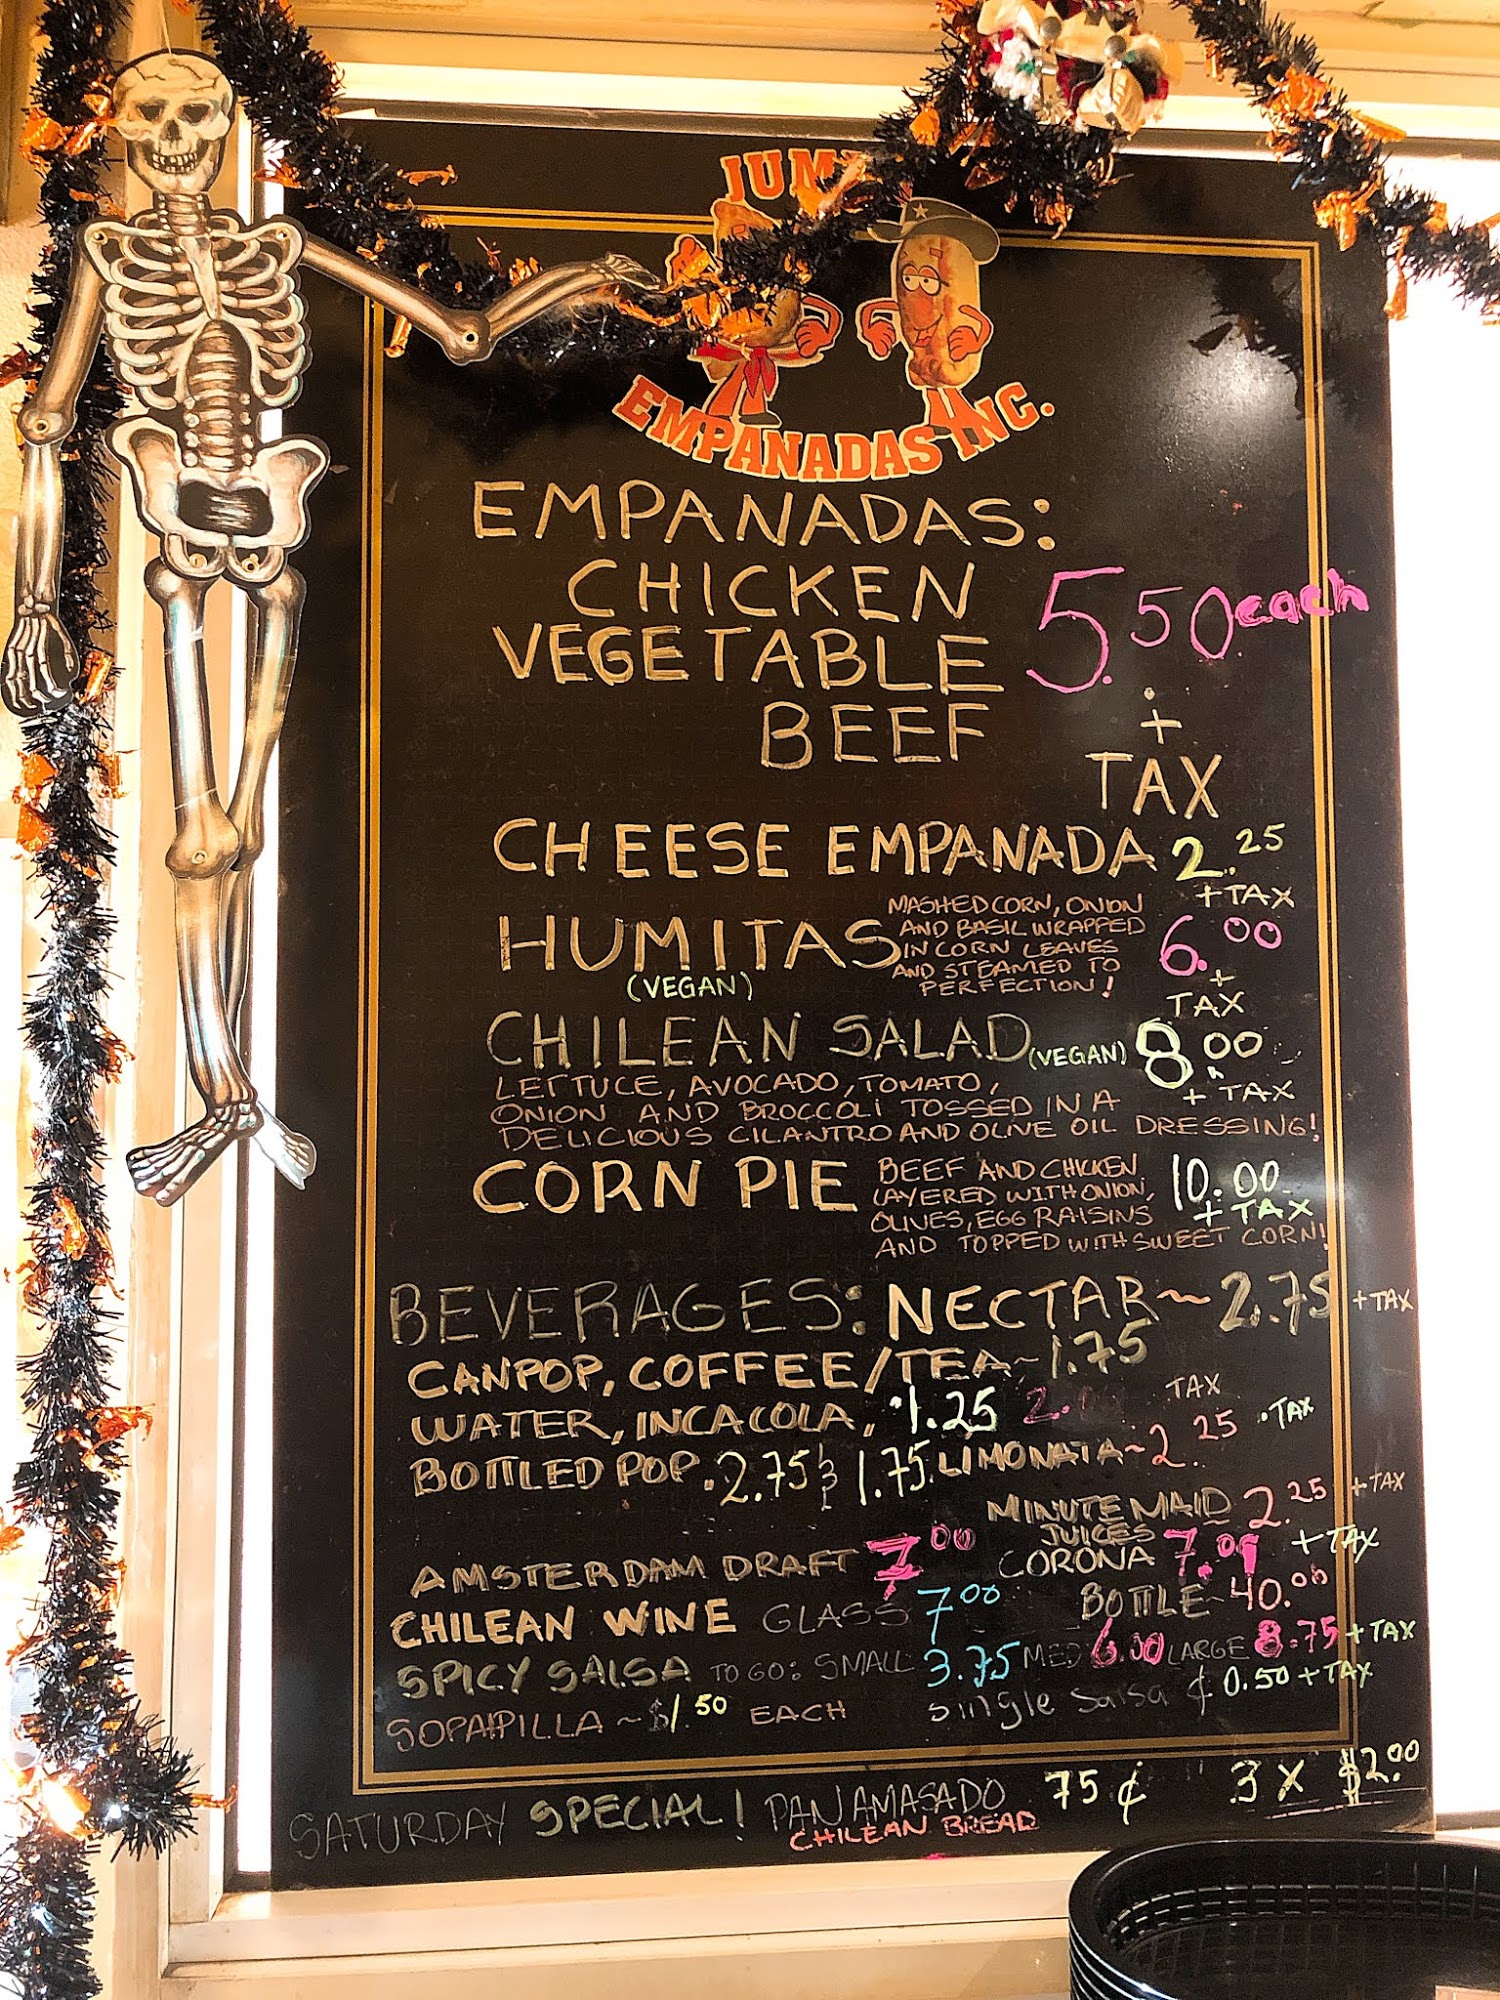 EMPANADAS INC.
EMPANADAS:
CHICKEN
VEGETABLE 5.50 each
BEEF +
TAX
CHEESE EMPANADA 2.25
+TAX
HUMITAS MASHED CORN, ONION
AND BASIL WRAPPED 6.00
IN CORN LEAVES
AND STEAMED TO +
(VEGAN) PERFECTION! TAX
CHILEAN SALAD (VEGAN) 8.00
LETTUCE, AVOCADO, TOMATO, + TAX
ONION AND BROCCOLI TOSSED IN A
DELICIOUS CILANTRO AND OLIVE OIL DRESSING!
CORN PIE BEEF AND CHICKEN 10.00
LAYERED WITH ONION, + TAX
OLIVES, EGG RAISINS
AND TOPPED WITH SWEET CORN!
BEVERAGES: NECTAR~ 2.75 + TAX
CANPOP, COFFEE/TEA~ 1.75
WATER, INCA COLA, 1.25 TAX
BOTTLED POP. 2.75 1.75 LIMONATA~2.25 TAX
MINUTE MAID 2.25 + TAX
JUICES
AMSTERDAM DRAFT 7.00 CORONA + TAX
CHILEAN WINE GLASS 7.00 BOTTLE~40.00
SPICY SALSA TO GO: SMALL 3.75 MED 6.00 LARGE 8.75 + TAX
SOPAIPILLA ~ $1.50 EACH single salsa ¢ 0.50 + TAX
SATURDAY SPECIAL! PAN AMASADO 75¢ 3 X $2.00
CHILEAN BREAD